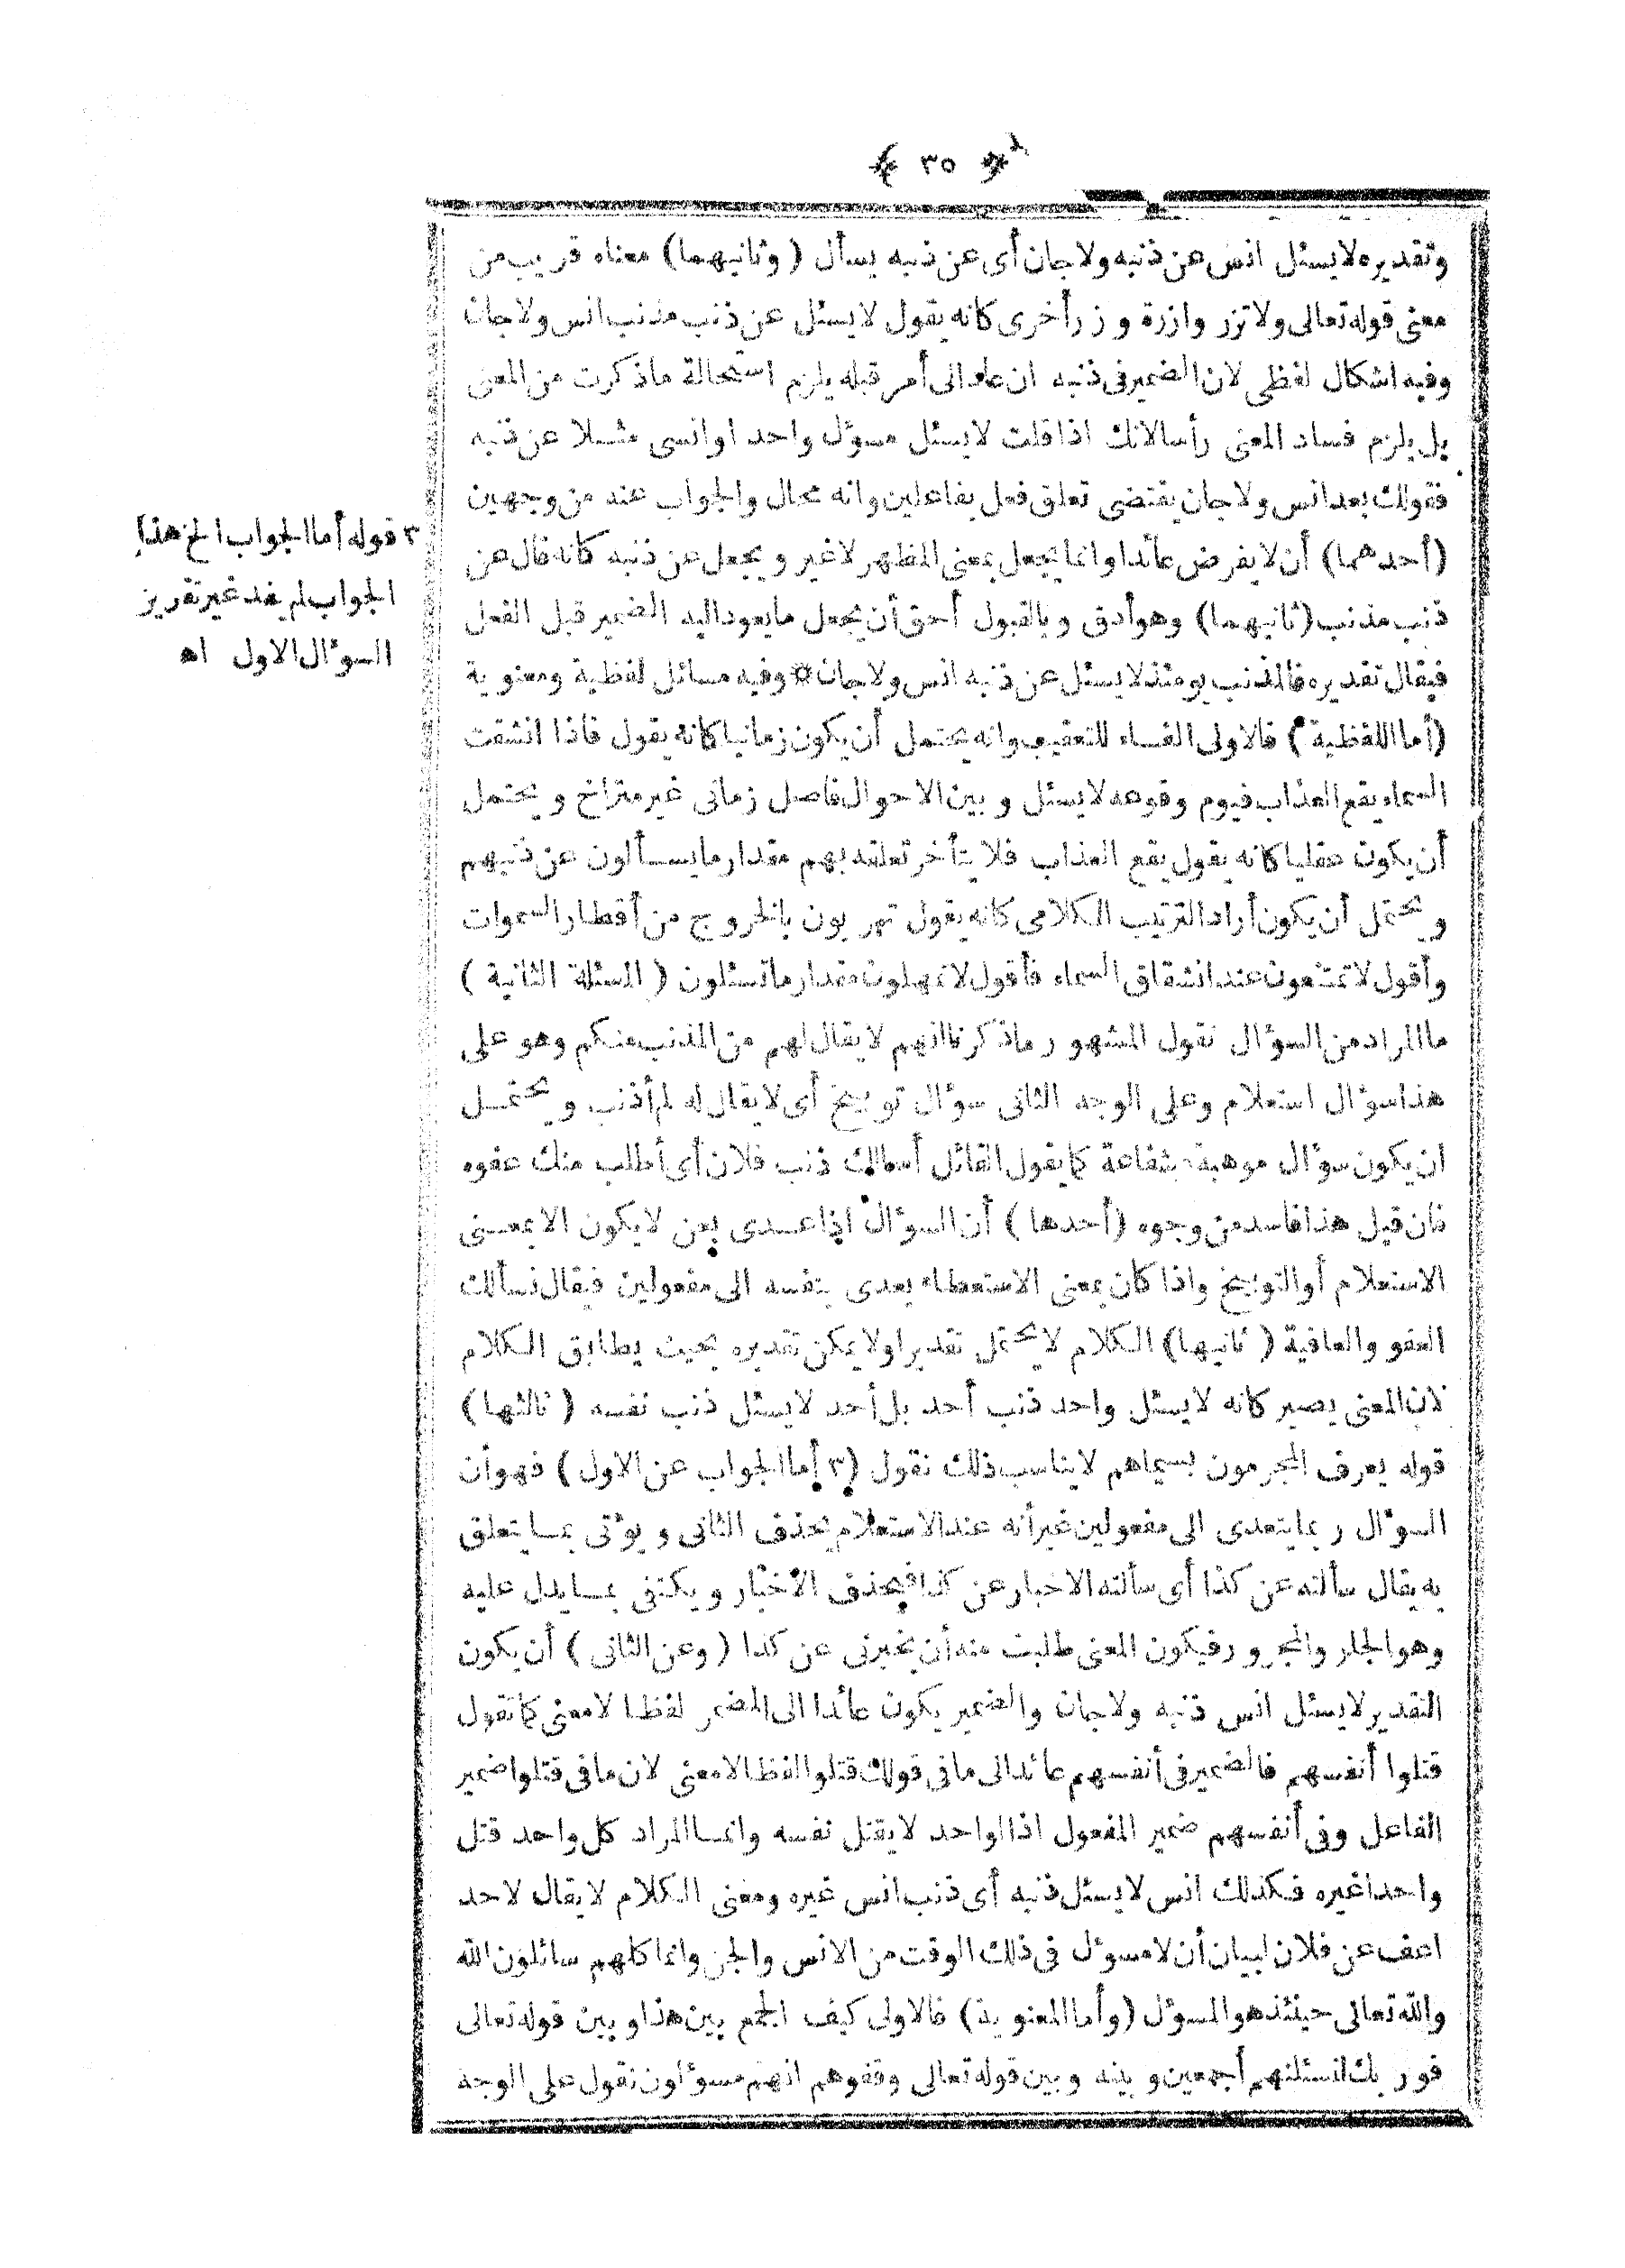 ﴿ ٣٥ ﴾
وتقديره لا يسئل انس عن ذنبه ولا جان أى عن ذنبه يسأل (وثانيهما) معناه قريب من
معنى قوله تعالى ولا تزر وازرة وزر أخرى كانه يقول لا يسئل عن ذنب مذنب انس ولا جان
وفيه اشكال لفظى لان الضمير فى ذنبه ان عاد الى أمر قبله يلزم استحالة ماذكرت من المعنى
بل يلزم فساد المعنى رأسا لانك اذا قلت لا يسئل مسؤل واحد او انسى مثلا عن ذنبه
فقولك بعد انس ولا جان يقتضى تعلق فعل بفاعلين وانه محال والجواب عنه من وجهين
(أحدهما) أن لا يفرض عائدا وانما يجعل بمعنى المظهر لا غير ويجعل عن ذنبه كانه قال عن
ذنب مذنب (ثانيهما) وهو أدق وبالقبول أحق أن يجعل ما يعود اليه الضمير قبل الفعل
فيقال تقديره فالمذنب يومئذ لا يسئل عن ذنبه انس ولا جان * وفيه مسائل لفظية ومعنوية
(أما اللفظية) فالاولى الفاء للتعقيب وانه يحتمل أن يكون زمانيا كانه يقول فاذا انشقت
السماء يقع العذاب فيوم وقوعه لا يسئل وبين الاحوال فاصل زمانى غير متراخ ويحتمل
أن يكون عقليا كانه يقول يقع العذاب فلا يتأخر تعلقه بهم مقدار ما يسألون عن ذنبهم
ويحتمل أن يكون أراد الترتيب الكلامى كانه يقول تهربون بالخروج من أقطار السموات
وأقول لا تمتنعون عند انشقاق السماء فأقول لا تمهلون مقدار ما تسئلون (المسئلة الثانية)
ما المراد من السؤال نقول المشهور ماذكرنا انهم لا يقال لهم من المذنب منكم وهو على
هذا سؤال استعلام وعلى الوجه الثانى سؤال توبيخ أى لا يقال له لم أذنب ويحتمل
ان يكون سؤال موهبة وشفاعة كما يقول القائل أسألك ذنب فلان أى أطلب منك عفوه
فان قيل هذا فاسد من وجوه (أحدها) أن السؤال اذا عدى بعن لا يكون الا بمعنى
الاستعلام أو التوبيخ واذا كان بمعنى الاستعطاء يعدى بنفسه الى مفعولين فيقال نسألك
العفو والعافية (ثانيها) الكلام لا يحتمل تقديرا ولا يمكن تقديره بحيث يطابق الكلام
لان المعنى يصير كانه لا يسئل واحد ذنب أحد بل أحد لا يسئل ذنب نفسه (ثالثها)
قوله يعرف المجرمون بسيماهم لا يناسب ذلك نقول (٣ أما الجواب عن الاول) فهو أن
السؤال ربما يتعدى الى مفعولين غير أنه عند الاستعلام يحذف الثانى ويؤتى بما يتعلق
به يقال سألته عن كذا أى سألته الاخبار عن كذا فيحذف الاخبار ويكتفى بما يدل عليه
وهو الجار والمجرور فيكون المعنى طلبت منه أن يخبرنى عن كذا (وعن الثانى) أن يكون
التقدير لا يسئل انس ذنبه ولا جان والضمير يكون عائدا الى المضمر لفظا لا معنى كما تقول
قتلوا أنفسهم فالضمير فى أنفسهم عائد الى ما فى قولك قتلوا لفظا لا معنى لان ما فى قتلوا ضمير
الفاعل وفى أنفسهم ضمير المفعول اذ الواحد لا يقتل نفسه وانما المراد كل واحد قتل
واحدا غيره فكذلك انس لا يسئل ذنبه أى ذنب انس غيره ومعنى الكلام لا يقال لاحد
اعف عن فلان لبيان أن لا مسؤل فى ذلك الوقت من الانس والجن وانما كلهم سائلون الله
والله تعالى حينئذ هو المسؤل (وأما المعنوية) فالاولى كيف الجمع بين هذا وبين قوله تعالى
فوربك لنسئلنهم أجمعين وبينه وبين قوله تعالى وقفوهم انهم مسؤلون نقول على الوجه
٣ قوله أما الجواب الخ هذا
الجواب لم يفد غير تقرير
السؤال الاول اه